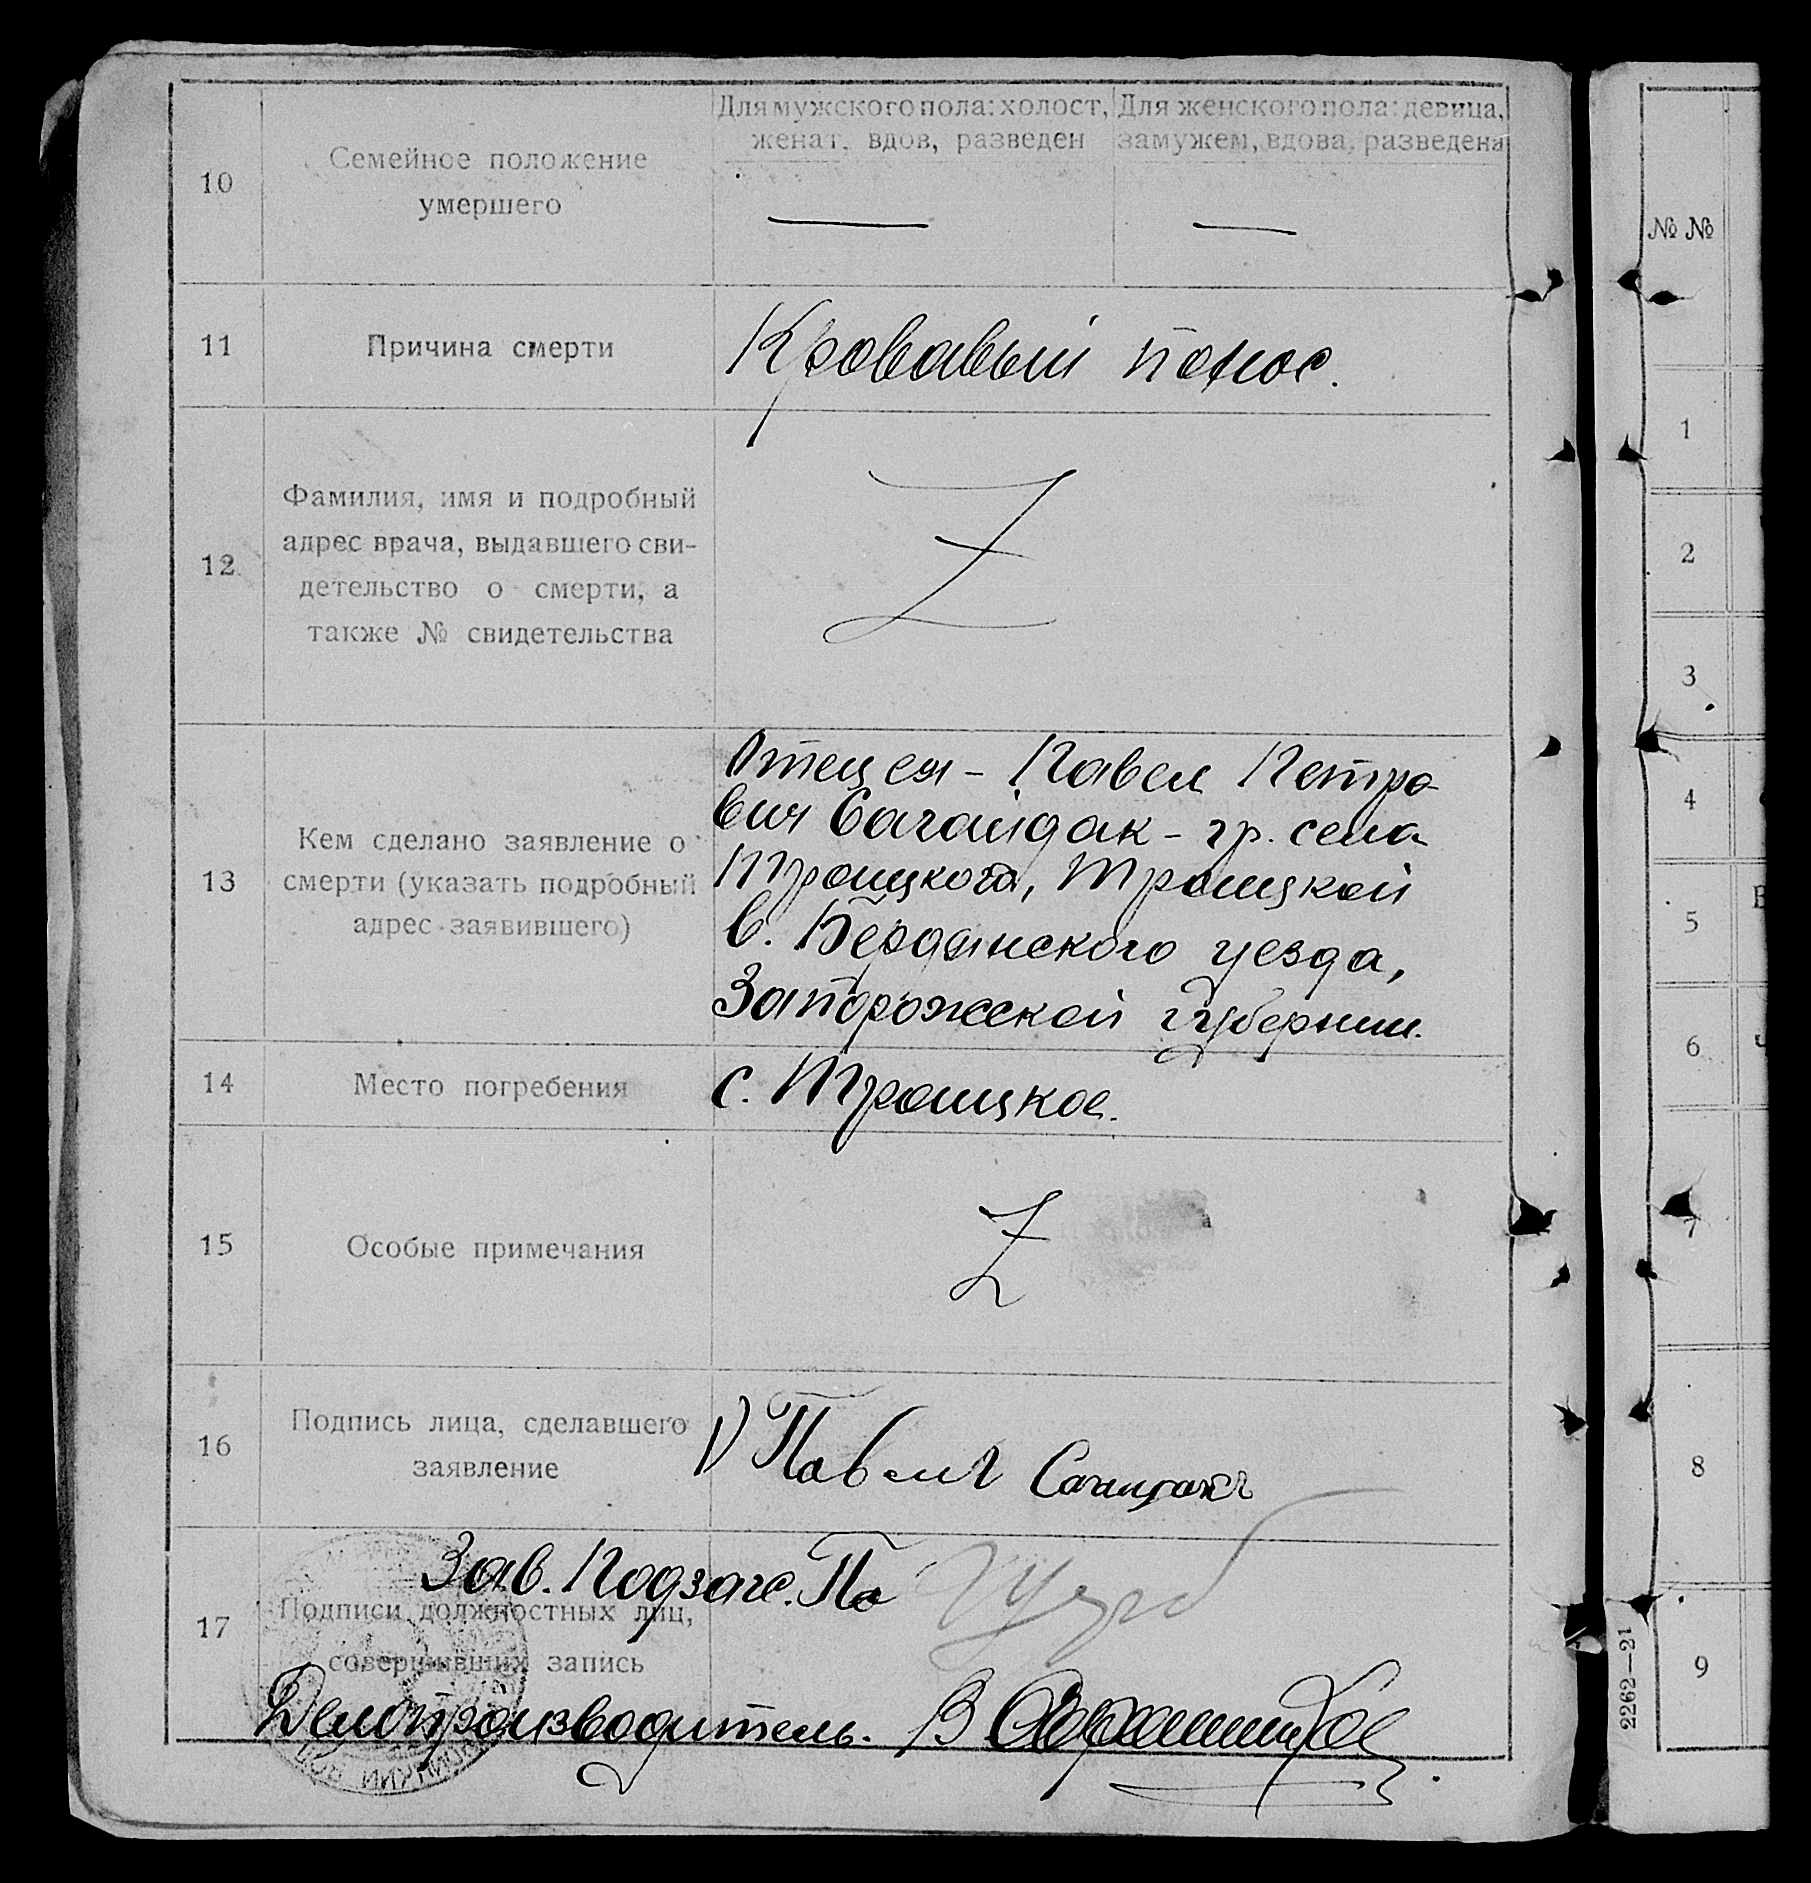 Для мужского пола: холост,
женат, вдов, разведен
Для женского пола: девица,
замужем, вдова, разведена
10
Семейное положение
умершего
—
—
11
Причина смерти
Кровавый понос.
12
Фамилия, имя и подробный
адрес врача, выдавшего сви-
детельство о смерти, а
также № свидетельства
Z
13
Кем сделано заявление о
смерти (указать подробный
адрес заявившего)
Отец ея – Павел Петро-
вич Сагайдак – гр. села
Троицкого, Троицкой
в. Бердянского уезда,
Запорожской губернии.
14
Место погребения
с. Троицкое.
15
Особые примечания
Z
16
Подпись лица, сделавшего
заявление
Павелъ Сагайдакъ
17
Подписи должностных лиц,
совершивших запись
Зав. Подзагс.
Делопроизводитель. В
№ №
1
2
3
4
5
6
7
8
9
2262—21